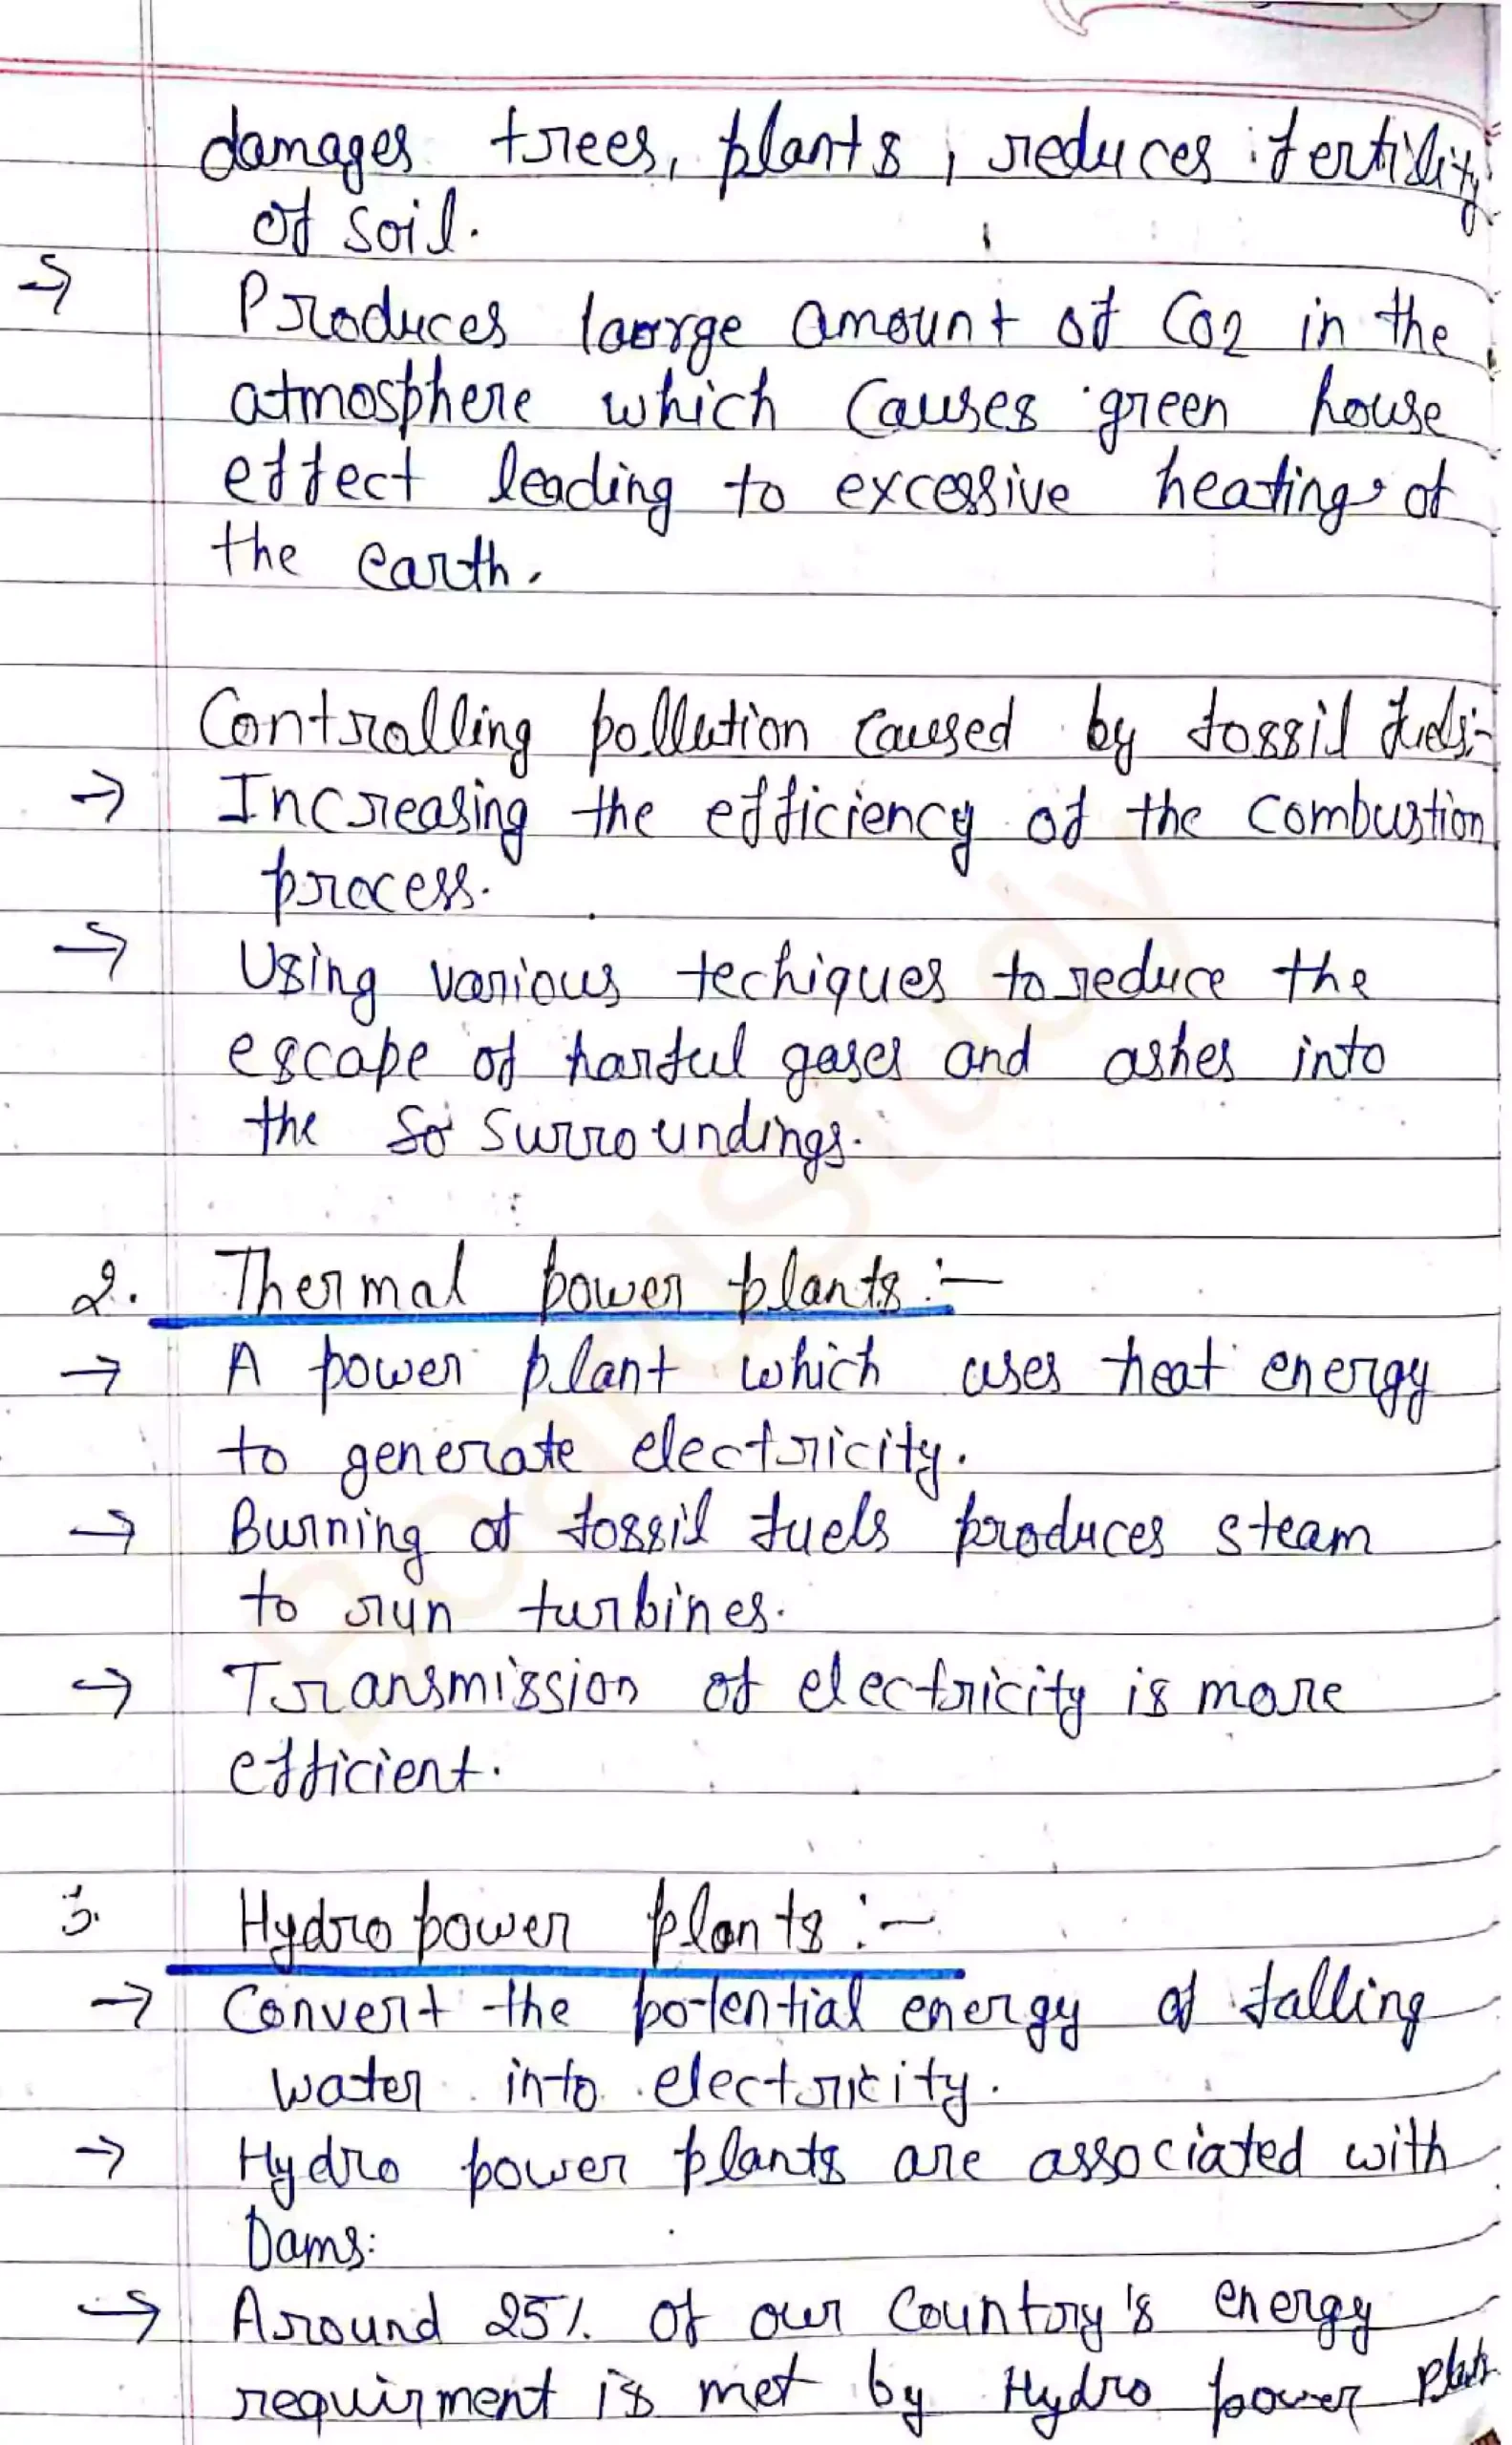 damages trees, plants, reduces fertility
of soil.
→ Produces large amount of CO2 in the
atmosphere which causes green house
effect leading to excessive heating of
the earth.
Controlling pollution caused by fossil fuels:-
→ Increasing the efficiency of the combustion
process.
→ Using various techiques to reduce the
escape of harful gases and ashes into
the so surroundings.
2. Thermal power plants :-
→ A power plant which uses heat energy
to generate electricity.
→ Burning of fossil fuels produces steam
to run turbines.
→ Transmission of electricity is more
efficient.
3. Hydro power plants :-
→ Convert the potential energy of falling
water into electricity.
→ Hydro power plants are associated with
Dams.
→ Around 25% of our Country's energy
requirment is met by Hydro power
BoardStudy